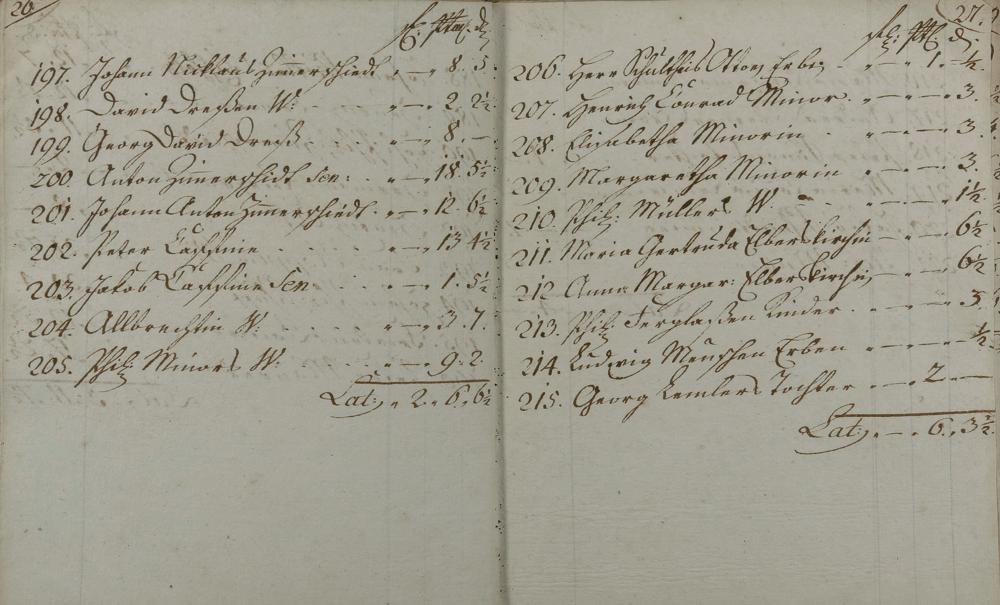 26
197. Johann Nicklaus Zimmerschiedt „ — „ 8. 5.
198. David Dreßen W: „ — „ 2. 2½
199. Georg David Dreß „ — „ 8. —
200. Anton Zimerschidt Sen: „ — „ 18. 5½
201. Johann Anton Zimerschiedt „ — „ 12. 6½
202. Peter Caffine „ — „ 13 4½
203. Jakob Caffine Sen „ — „ 1. 5½
204. Albrechtin W: „ — „ 3. 7.
205. Phil: Minors W: „ — „ 9. 2.
Lat: „ 2. „ 6. „ 6½
27.
206. Herr Schultheis Erben „ — „ 1. ½
207. Henrich Conrad Minor „ — „ — „ 3.
208. Elisabetha Minorin „ — „ — „ 3.
209. Margaretha Minorin „ — „ — „ 3.
210. Phil: Müllers W. „ — „ — „ 1½
211. Maria Gertruda Elberskirchin „ — „ — „ 6½
212 Anna Margar: Elberskirchin „ — „ — „ 6½
213. Phil: Kinder „ — „ — „ 3.
214. Ludwig Erben „ — „ — „ ½
215. Georg Lemlers Tochter „ — „ 2 „ —
Lat: „ — „ 6. „ 3½